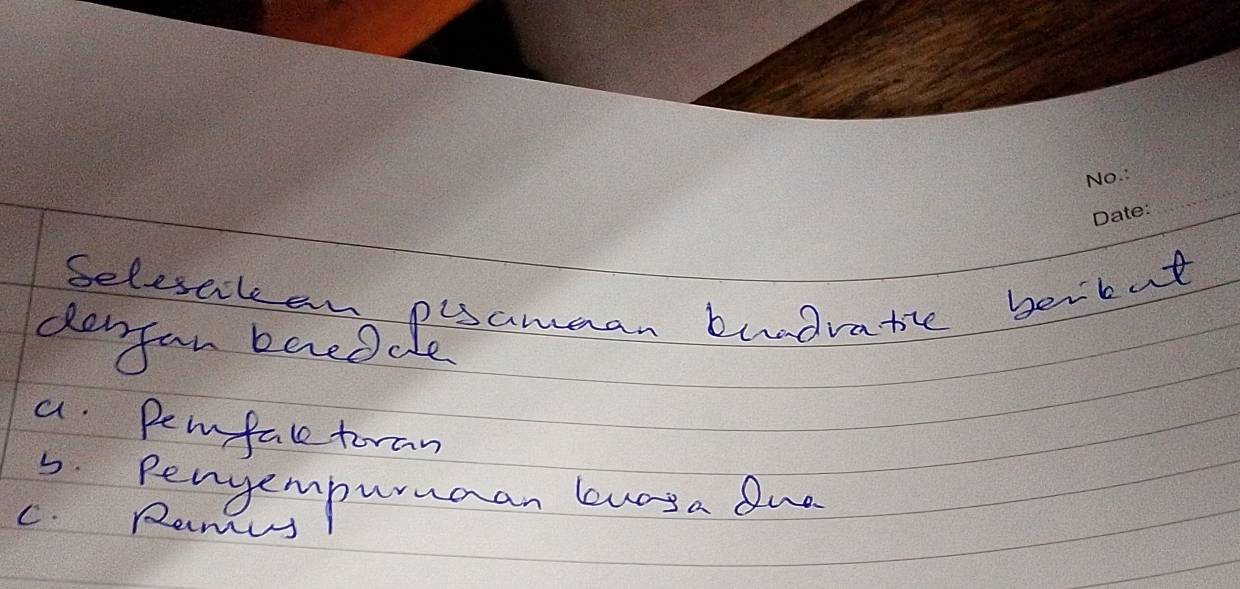 No.:
Date:
Selesaikan psamaan kuadratik berikut
dengan
a. Pemfaktoran
b. Penyempurnaan kuasa dua
c. Rumus